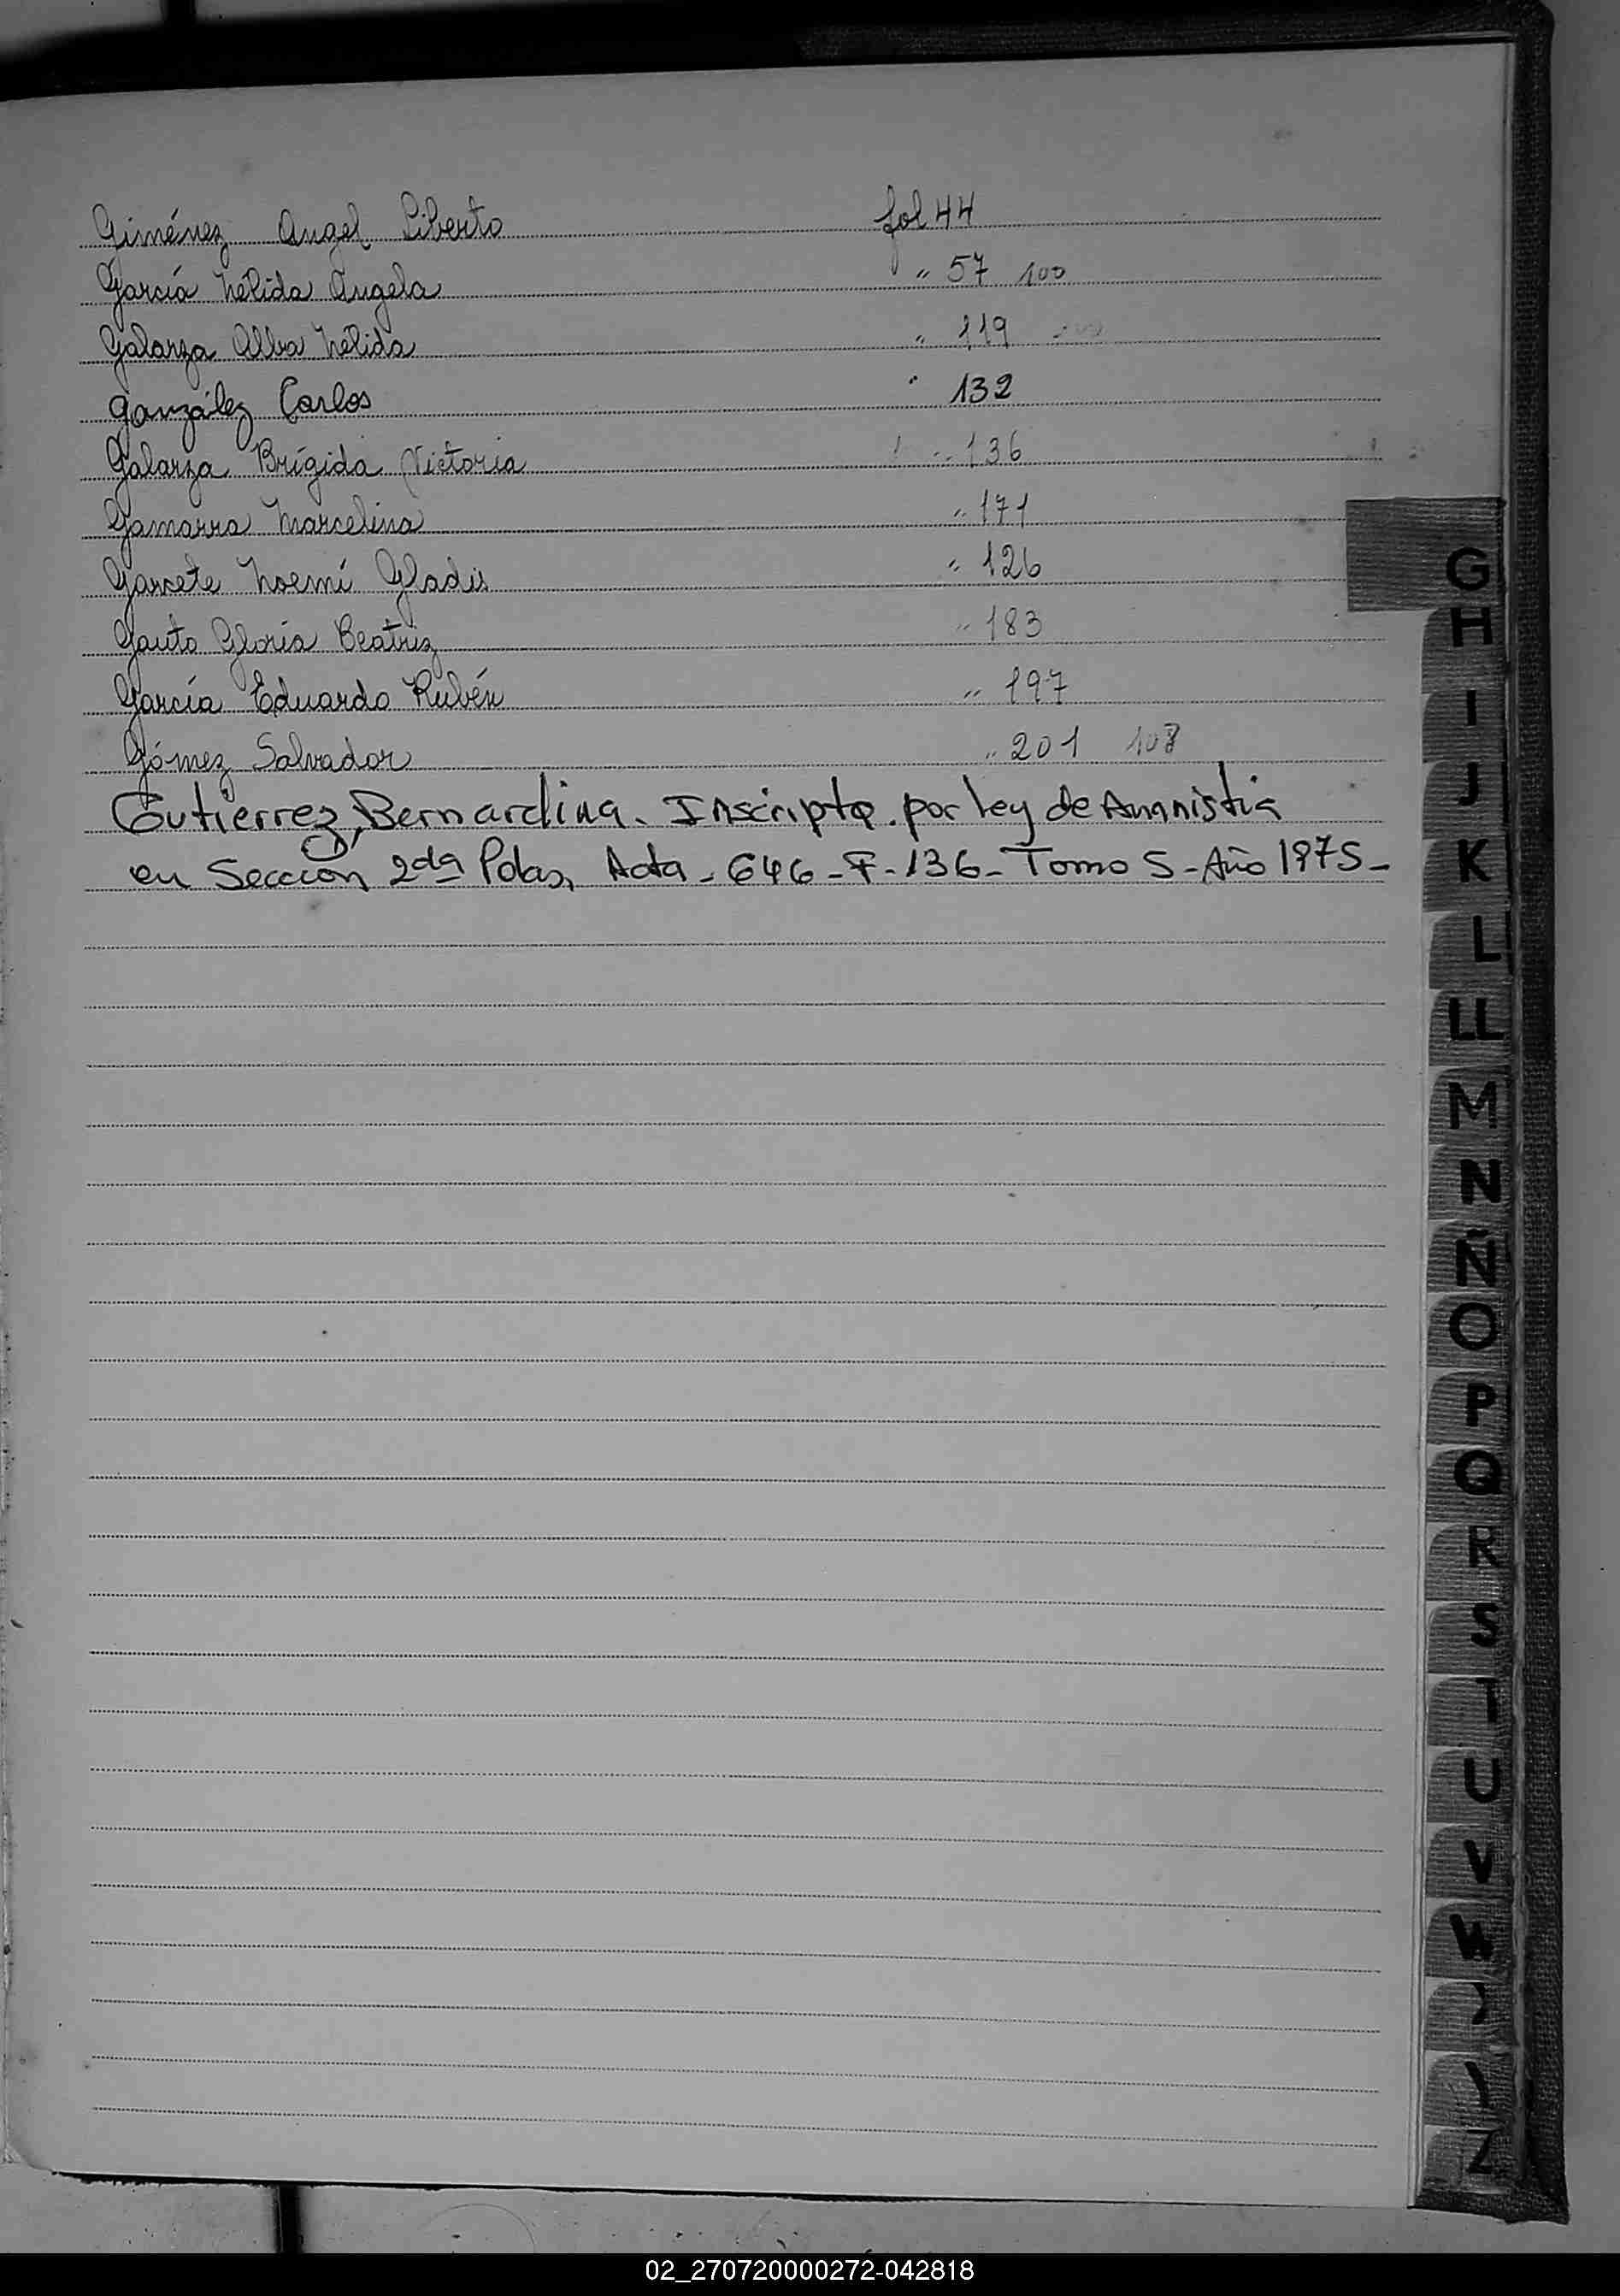 Giménez Angel Liberto fol 44
García Nélida Angela " 57 100
Galarza Alba Nélida " 119
González Carlos " 132
Galarza Brígida Victoria " 136
Gamarra Marcelina " 171
Garcete Noemí Gladis " 126
Gauto Gloria Beatriz " 183
García Eduardo Rubén " 197
Gómez Salvador " 201 108
Gutierrez, Bernardina. Inscripta. por ley de Amnistia
en Sección 2da Pdas, Acta - 646 - F - 136 - Tomo 5 - Año 1975 -
G
H
I
J
K
L
LL
M
N
Ñ
O
P
Q
R
S
T
U
V
W
Z
02_270720000272-042818